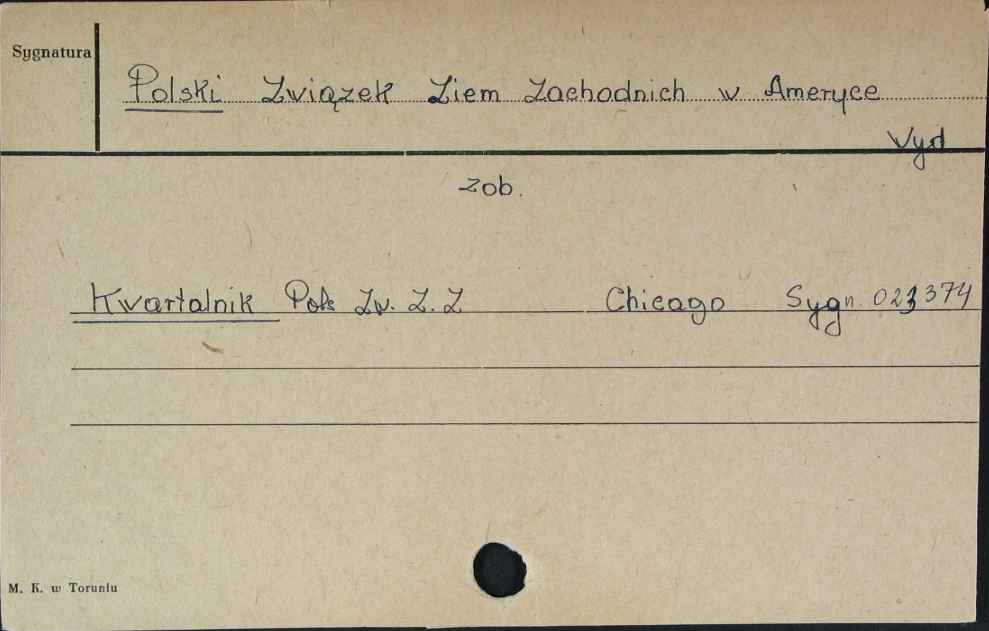 Sygnatura
Polski Związek Ziem Zachodnich w Ameryce
Wyd
zob.
Kwartalnik Pols Zw. Z. Z Chicago Sygn. 023374
M. K. w Toruniu